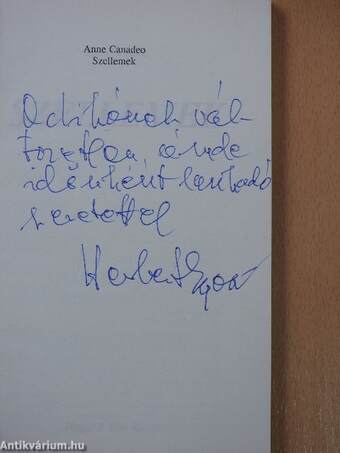 Anne Canadeo
Szellemek
Ocsikónak vál-
tozatlan, ámde
időnként lankadó
szeretettel
Herbert
Antikvárium.hu